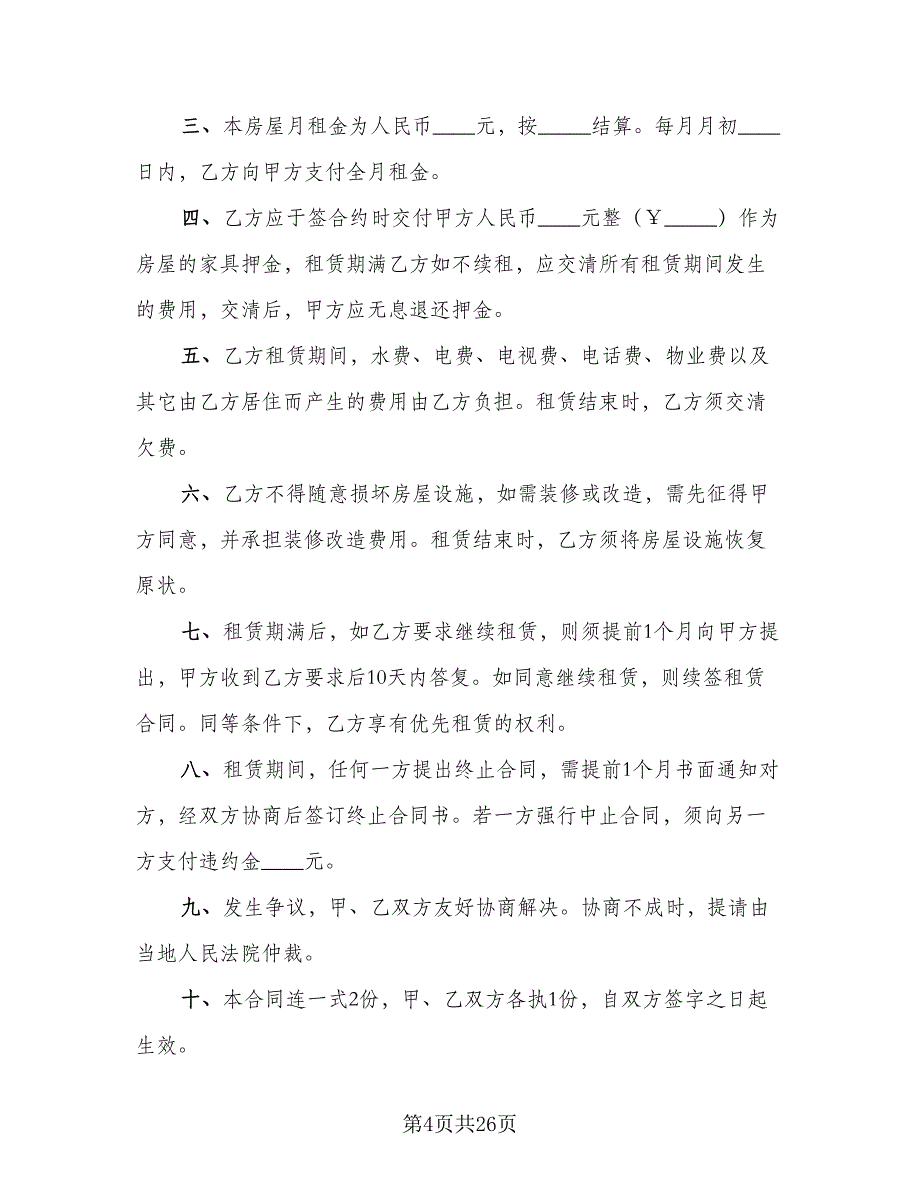 三、本房屋月租金为人民币____元，按_____结算。每月月初____
日内，乙方向甲方支付全月租金。
四、乙方应于签合约时交付甲方人民币____元整（￥_____）作为
房屋的家具押金，租赁期满乙方如不续租，应交清所有租赁期间发生
的费用，交清后，甲方应无息退还押金。
五、乙方租赁期间，水费、电费、电视费、电话费、物业费以及
其它由乙方居住而产生的费用由乙方负担。租赁结束时，乙方须交清
欠费。
六、乙方不得随意损坏房屋设施，如需装修或改造，需先征得甲
方同意，并承担装修改造费用。租赁结束时，乙方须将房屋设施恢复
原状。
七、租赁期满后，如乙方要求继续租赁，则须提前1个月向甲方提
出，甲方收到乙方要求后10天内答复。如同意继续租赁，则续签租赁
合同。同等条件下，乙方享有优先租赁的权利。
八、租赁期间，任何一方提出终止合同，需提前1个月书面通知对
方，经双方协商后签订终止合同书。若一方强行中止合同，须向另一
方支付违约金____元。
九、发生争议，甲、乙双方友好协商解决。协商不成时，提请由
当地人民法院仲裁。
十、本合同连一式2份，甲、乙双方各执1份，自双方签字之日起
生效。
第4页共26页